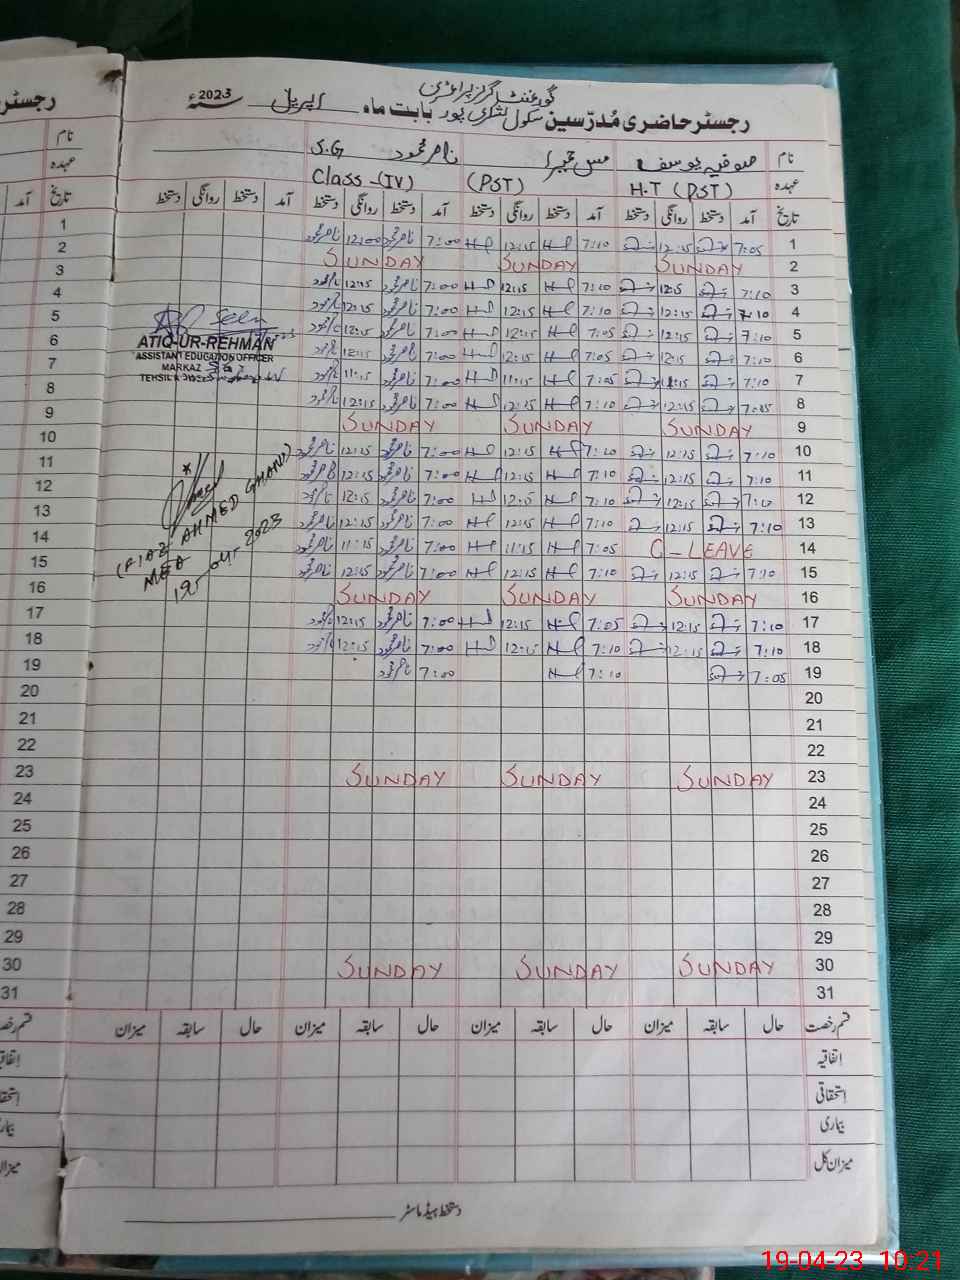 گورنمنٹ گرلز پرائمری
رجسٹر حاضری مُدرّسین سکول لشکری پور بابت ماہ اپریل سنہ 2023ء
نام صوفیہ یوسف مس حمیرا ناصر محمود S.G
عہدہ H.T (PST) (PST) Class-(IV)
تاریخ آمد دستخط روانگی دستخط آمد دستخط روانگی دستخط آمد دستخط روانگی دستخط آمد دستخط روانگی دستخط
1 7:05 12:15 7:10 12:15 7:00 ناصر محمود 12:00 ناصر محمود
2 SUNDAY SUNDAY SUNDAY
3 7:10 12:5 7:10 12:15 7:00 ناصر محمود 12:15
4 7:10 12:15 7:10 12:15 7:00 ناصر محمود 12:15
5 7:10 12:15 7:05 12:15 7:00 ناصر محمود 12:15
6 7:10 12:15 7:05 12:15 7:00 ناصر محمود 12:15
7 7:10 11:15 7:05 11:15 7:00 ناصر محمود 11:15
8 7:05 12:15 7:10 12:15 7:00 ناصر محمود 12:15
9 SUNDAY SUNDAY SUNDAY
10 7:10 12:15 7:10 12:15 7:00 ناصر محمود 12:15 ناصر محمود
11 7:10 12:15 7:10 12:15 7:00 ناصر محمود 12:15 ناصر محمود
12 7:10 12:15 7:10 12:5 7:00 ناصر محمود 12:15
13 7:10 12:15 7:10 12:15 7:00 ناصر محمود 12:15 ناصر محمود
14 C-LEAVE 7:05 11:15 7:00 ناصر محمود 11:15 ناصر محمود
15 7:10 12:15 7:10 12:15 7:00 ناصر محمود 12:15 ناصر محمود
16 SUNDAY SUNDAY SUNDAY
17 7:10 12:15 7:05 12:15 7:00 ناصر محمود 12:15
18 7:10 12:15 7:10 12:15 7:00 ناصر محمود 12:15
19 7:05 7:10 7:00 ناصر محمود
20
21
22
23 SUNDAY SUNDAY SUNDAY
24
25
26
27
28
29
30 SUNDAY SUNDAY SUNDAY
31
قسم رخصت حال سابقہ میزان حال سابقہ میزان حال سابقہ میزان حال سابقہ میزان
اتفاقیہ
استحقاقی
بیماری
میزان کل
دستخط ہیڈ ماسٹر
Seen
ATIQ-UR-REHMAN
ASSISTANT EDUCATION OFFICER
MARKAZ
TEHSIL &
(FIAZ AHMED GHANI)
MEA
19-04-2023
رجسٹر
نام
عہدہ
تاریخ آمد
1
2
3
4
5
6
7
8
9
10
11
12
13
14
15
16
17
18
19
20
21
22
23
24
25
26
27
28
29
30
31
19-04-23 10:21